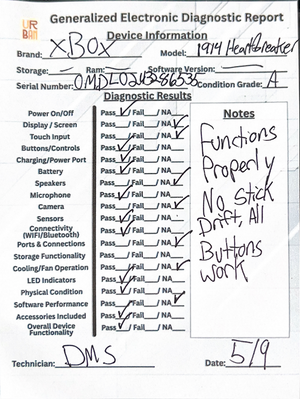 UR
BAN
Generalized Electronic Diagnostic Report
Device Information
Brand: XBOX Model: 1914 Heartbreaker
Storage: — Ram: — Software Version: —
Serial Number: Condition Grade: A
Diagnostic Results
Power On/Off Pass ✓/Fail___/NA___
Display / Screen Pass___/Fail___/NA ✓
Touch Input Pass___/Fail___/NA ✓
Buttons/Controls Pass ✓/Fail___/NA___
Charging/Power Port Pass ✓/Fail___/NA___
Battery Pass ✓/Fail___/NA___
Speakers Pass___/Fail___/NA ✓
Microphone Pass ✓/Fail___/NA___
Camera Pass___/Fail___/NA ✓
Sensors Pass ✓/Fail___/NA___
Connectivity
(WIFI/Bluetooth) Pass ✓/Fail___/NA___
Ports & Connections Pass___/Fail___/NA ✓
Storage Functionality Pass___/Fail___/NA___
Cooling/Fan Operation Pass___/Fail___/NA ✓
LED Indicators Pass ✓/Fail___/NA___
Physical Condition Pass ✓/Fail___/NA___
Software Performance Pass___/Fail___/NA ✓
Accessories Included Pass ✓/Fail___/NA___
Overall Device
Functionality Pass ✓/Fail___/NA___
Notes
Functions
Properly
No Stick
Drift, All
Buttons
work
Technician: DMS Date: 5/9